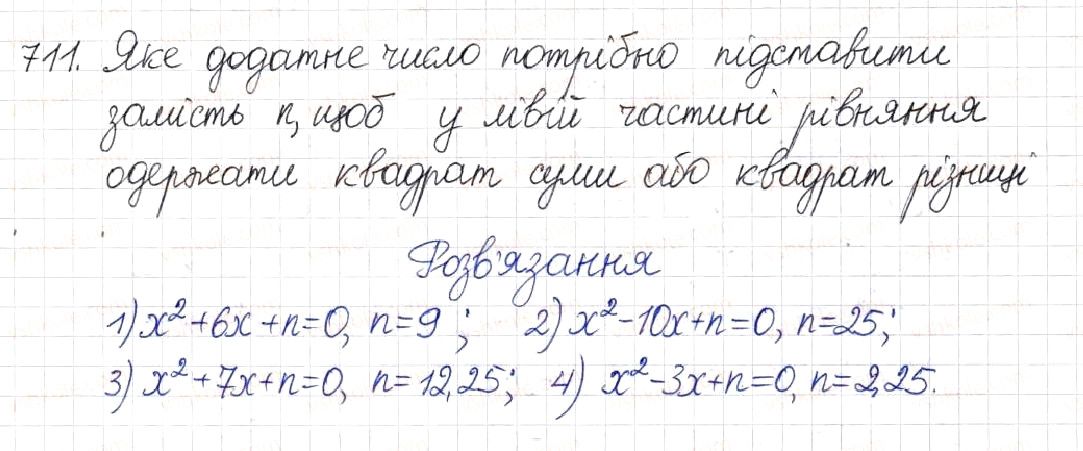 711. Яке додатне число потрібно підставити
замість n, щоб у лівій частині рівняння
одержати квадрат суми або квадрат різниці
Розв'язання
1) x²+6x+n=0, n=9; 2) x²-10x+n=0, n=25;
3) x²+7x+n=0, n=12,25; 4) x²-3x+n=0, n=2,25.